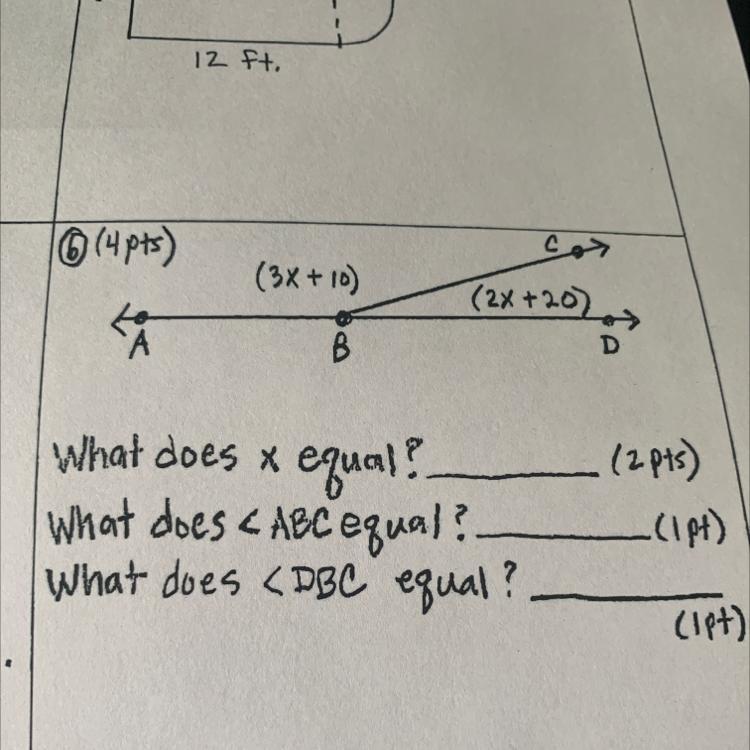 12 ft.
⑥ (4pts)
C
(3x + 10)
(2x + 20)
A
B
D
What does x equal? (2 pts)
What does < ABC equal? (1pt)
What does < DBC equal?
(1pt)